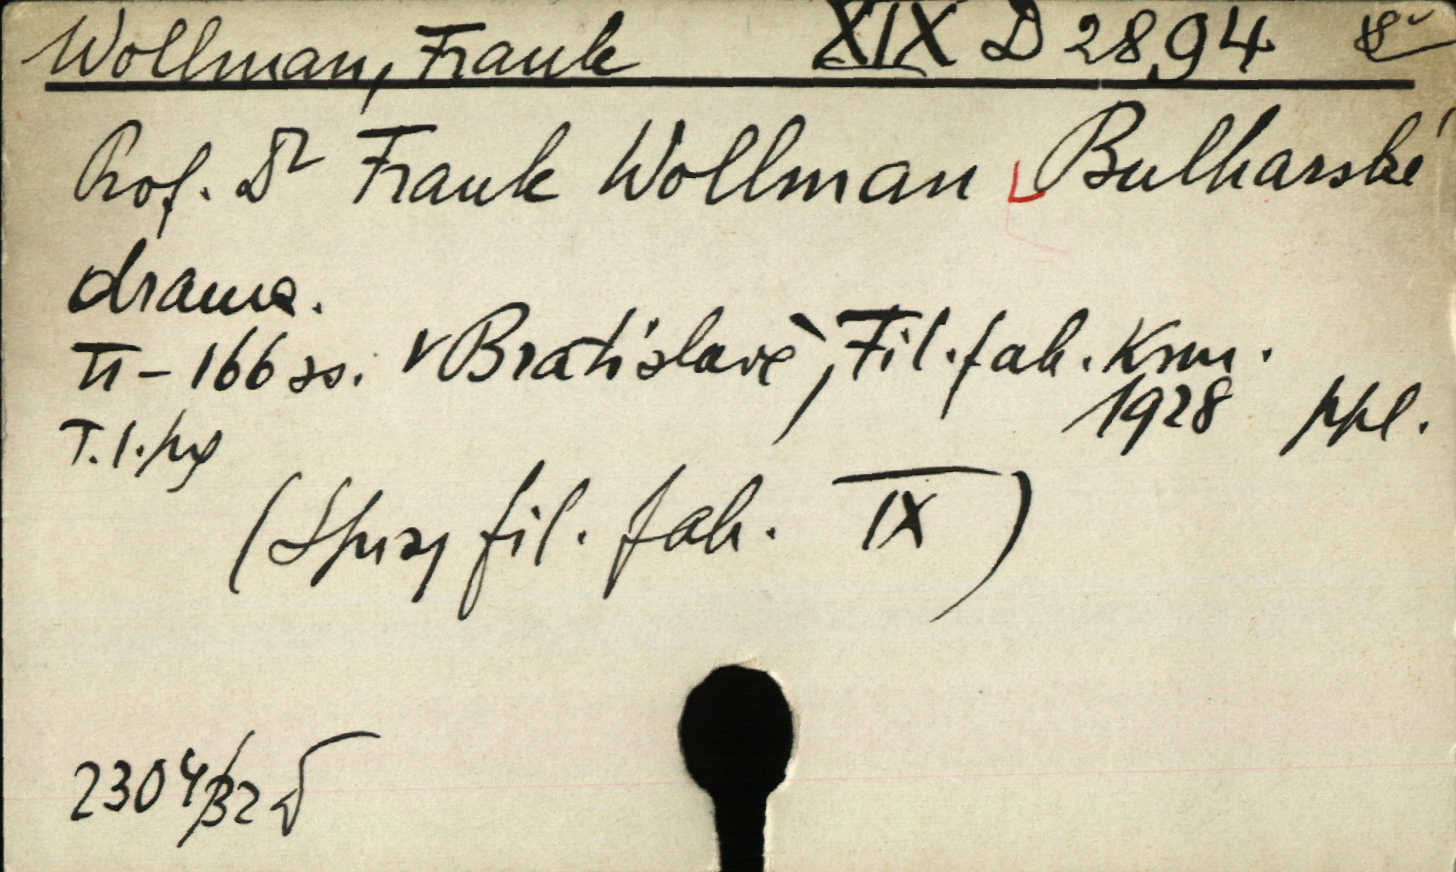 Wollman, Frank XIX D 28,94 8°
Prof. Dr Frank Wollman Bulharské
drama.
II – 166 ss. V Bratislavě, Fil. fak. Kom.
1928 ppl.
T.
(Spisy fil. fak. IX)
2304/32 D